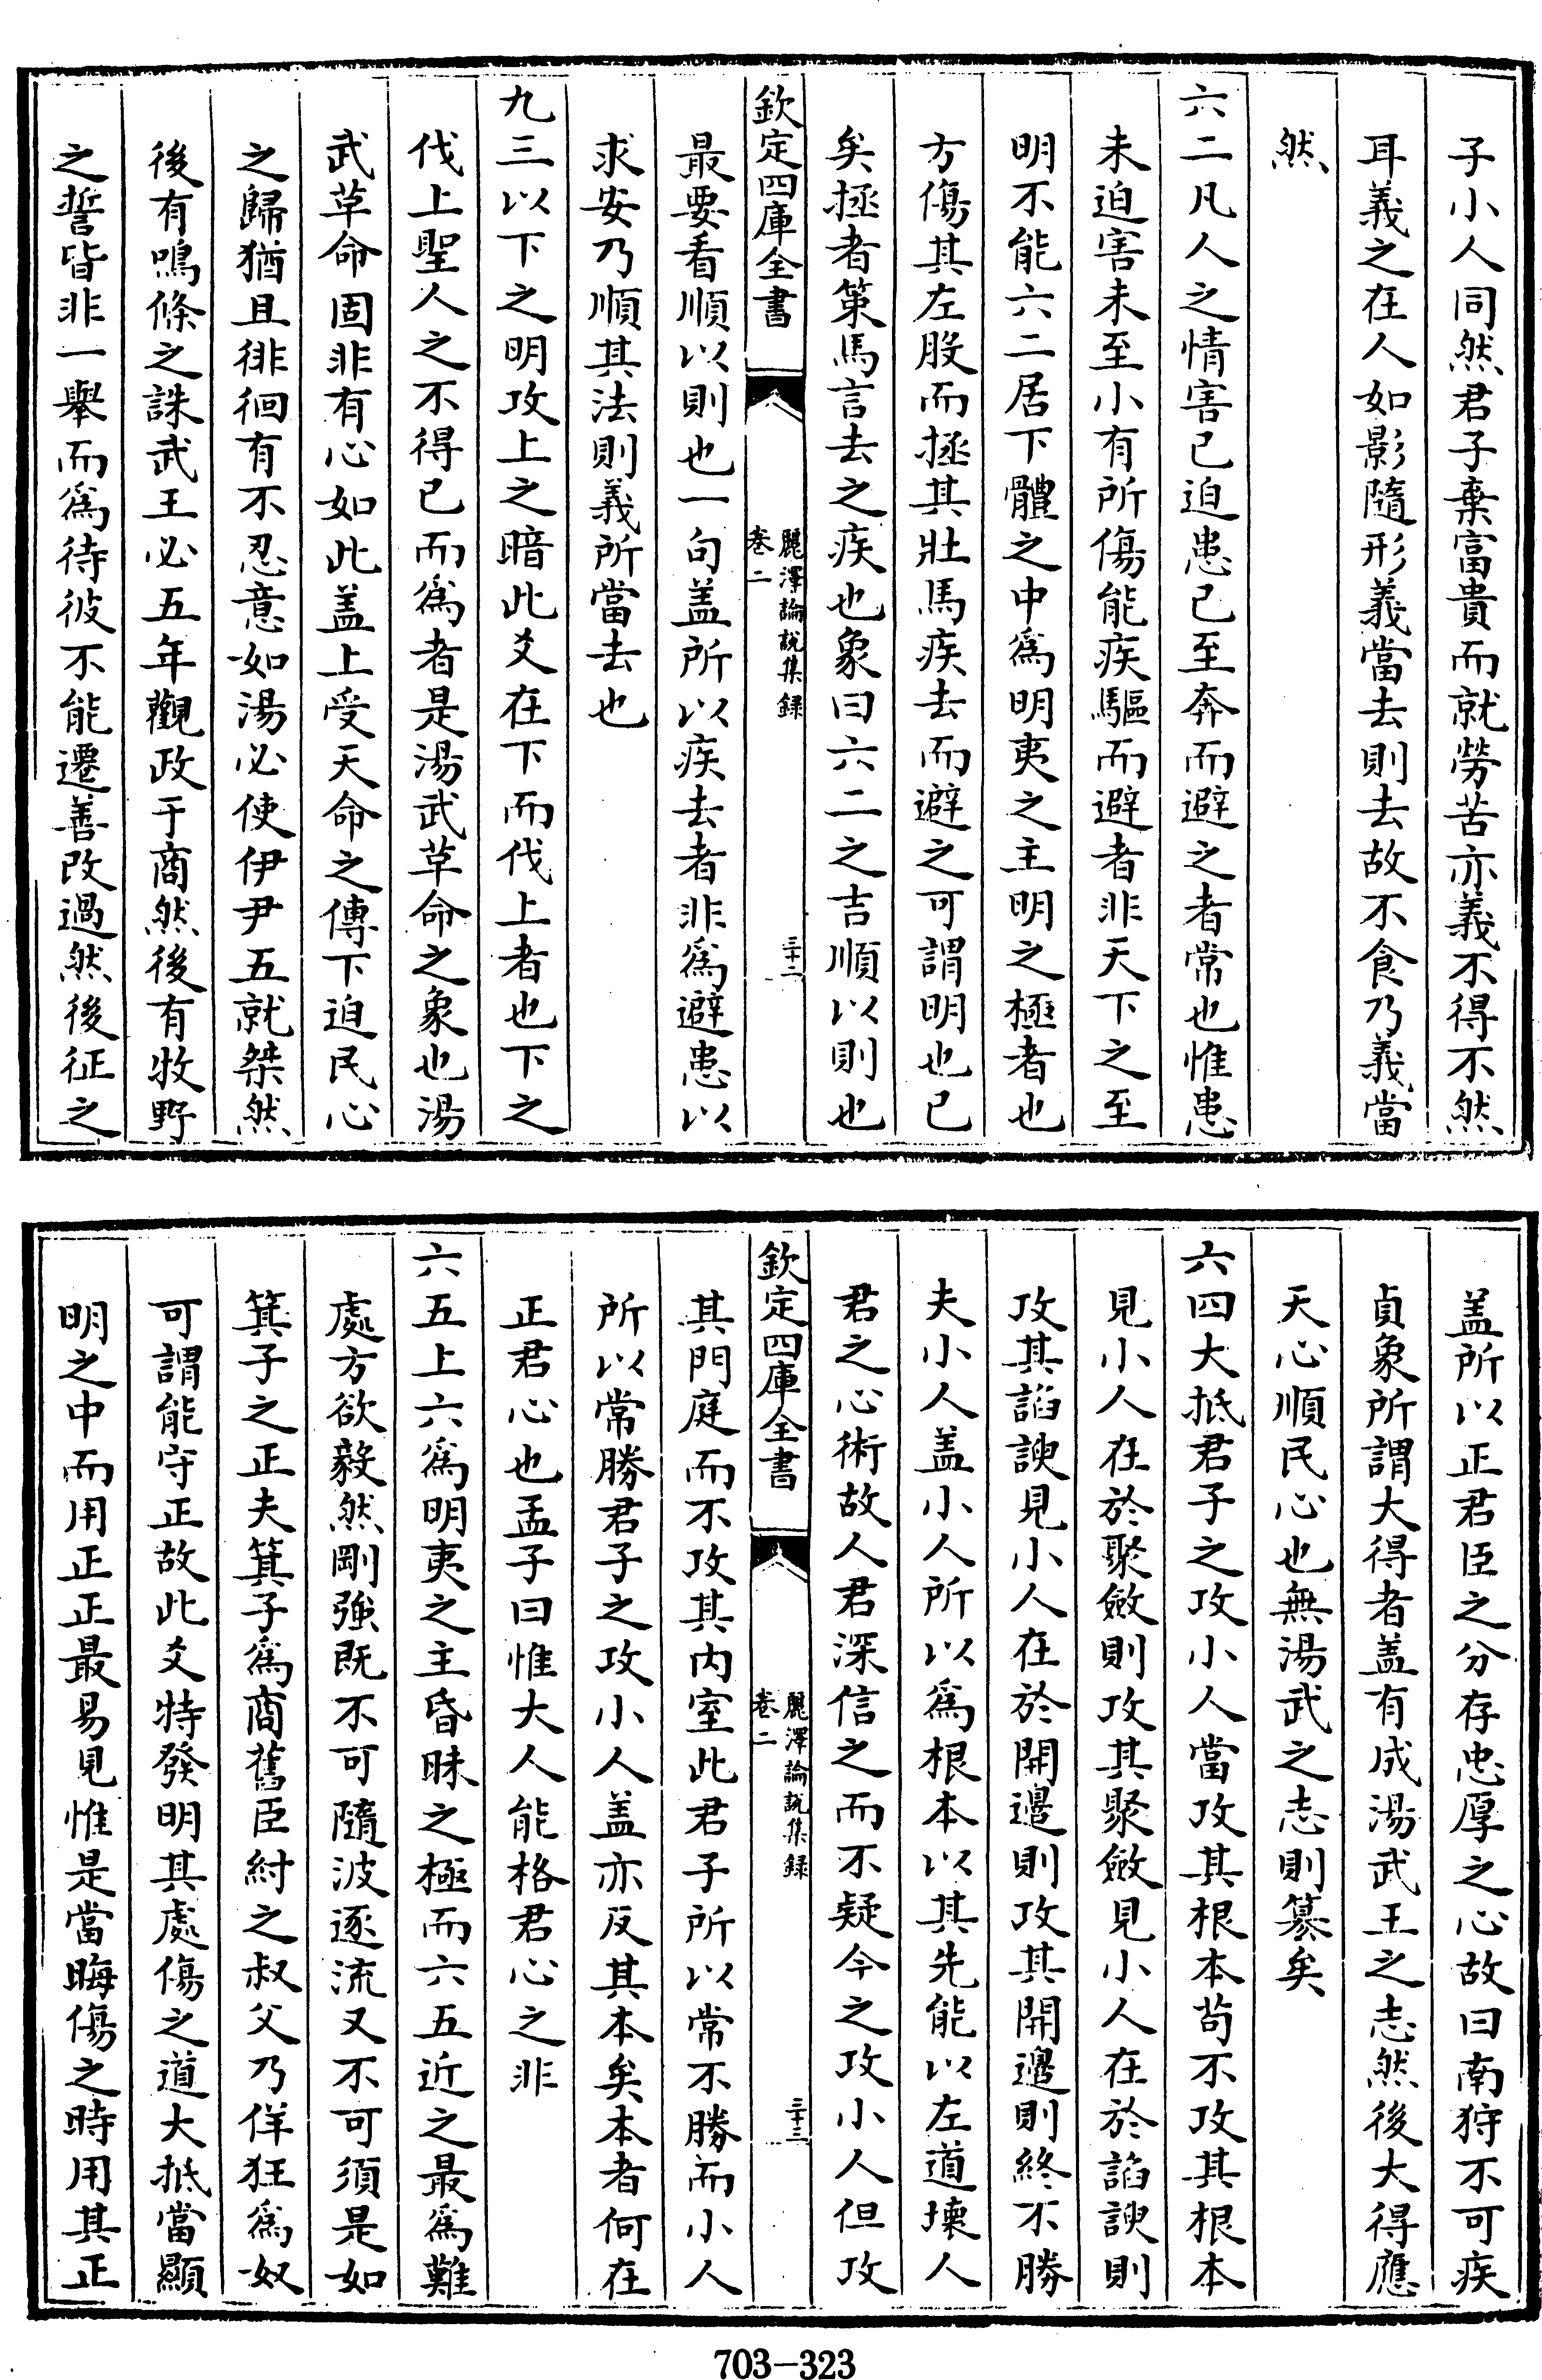 子小人同然君子棄富貴而就勞苦亦義不得不然
耳義之在人如影隨形義當去則去故不食乃義當
然
六二凡人之情害已迫患已至奔而避之者常也惟患
未迫害未至小有所傷能疾驅而避者非天下之至
明不能六二居下體之中爲明夷之主明之極者也
方傷其左股而拯其壯馬疾去而避之可謂明也已
矣拯者策馬言去之疾也象曰六二之吉順以則也
欽定四庫全書
麗澤論說集録
卷二
三十二
最要看順以則也一句盖所以疾去者非爲避患以
求安乃順其法則義所當去也
九三以下之明攻上之暗此爻在下而伐上者也下之
伐上聖人之不得已而爲者是湯武革命之象也湯
武革命固非有心如此盖上受天命之傳下迫民心
之歸猶且徘徊有不忍意如湯必使伊尹五就桀然
後有鳴條之誅武王必五年觀政于商然後有牧野
之誓皆非一舉而爲待彼不能遷善改過然後征之
盖所以正君臣之分存忠厚之心故曰南狩不可疾
貞象所謂大得者盖有成湯武王之志然後大得應
天心順民心也無湯武之志則篡矣
六四大抵君子之攻小人當攻其根本苟不攻其根本
見小人在於聚斂則攻其聚斂見小人在於諂諛則
攻其諂諛見小人在於開邊則攻其開邊則終不勝
夫小人盖小人所以爲根本以其先能以左道壊人
君之心術故人君深信之而不疑今之攻小人但攻
欽定四庫全書
麗澤論說集録
卷二
三十三
其門庭而不攻其内室此君子所以常不勝而小人
所以常勝君子之攻小人盖亦反其本矣本者何在
正君心也孟子曰惟大人能格君心之非
六五上六爲明夷之主昏昧之極而六五近之最爲難
處方欲毅然剛強既不可隨波逐流又不可須是如
箕子之正夫箕子爲商舊臣紂之叔父乃佯狂爲奴
可謂能守正故此爻特發明其處傷之道大抵當顯
明之中而用正正最易見惟是當晦傷之時用其正
703-323